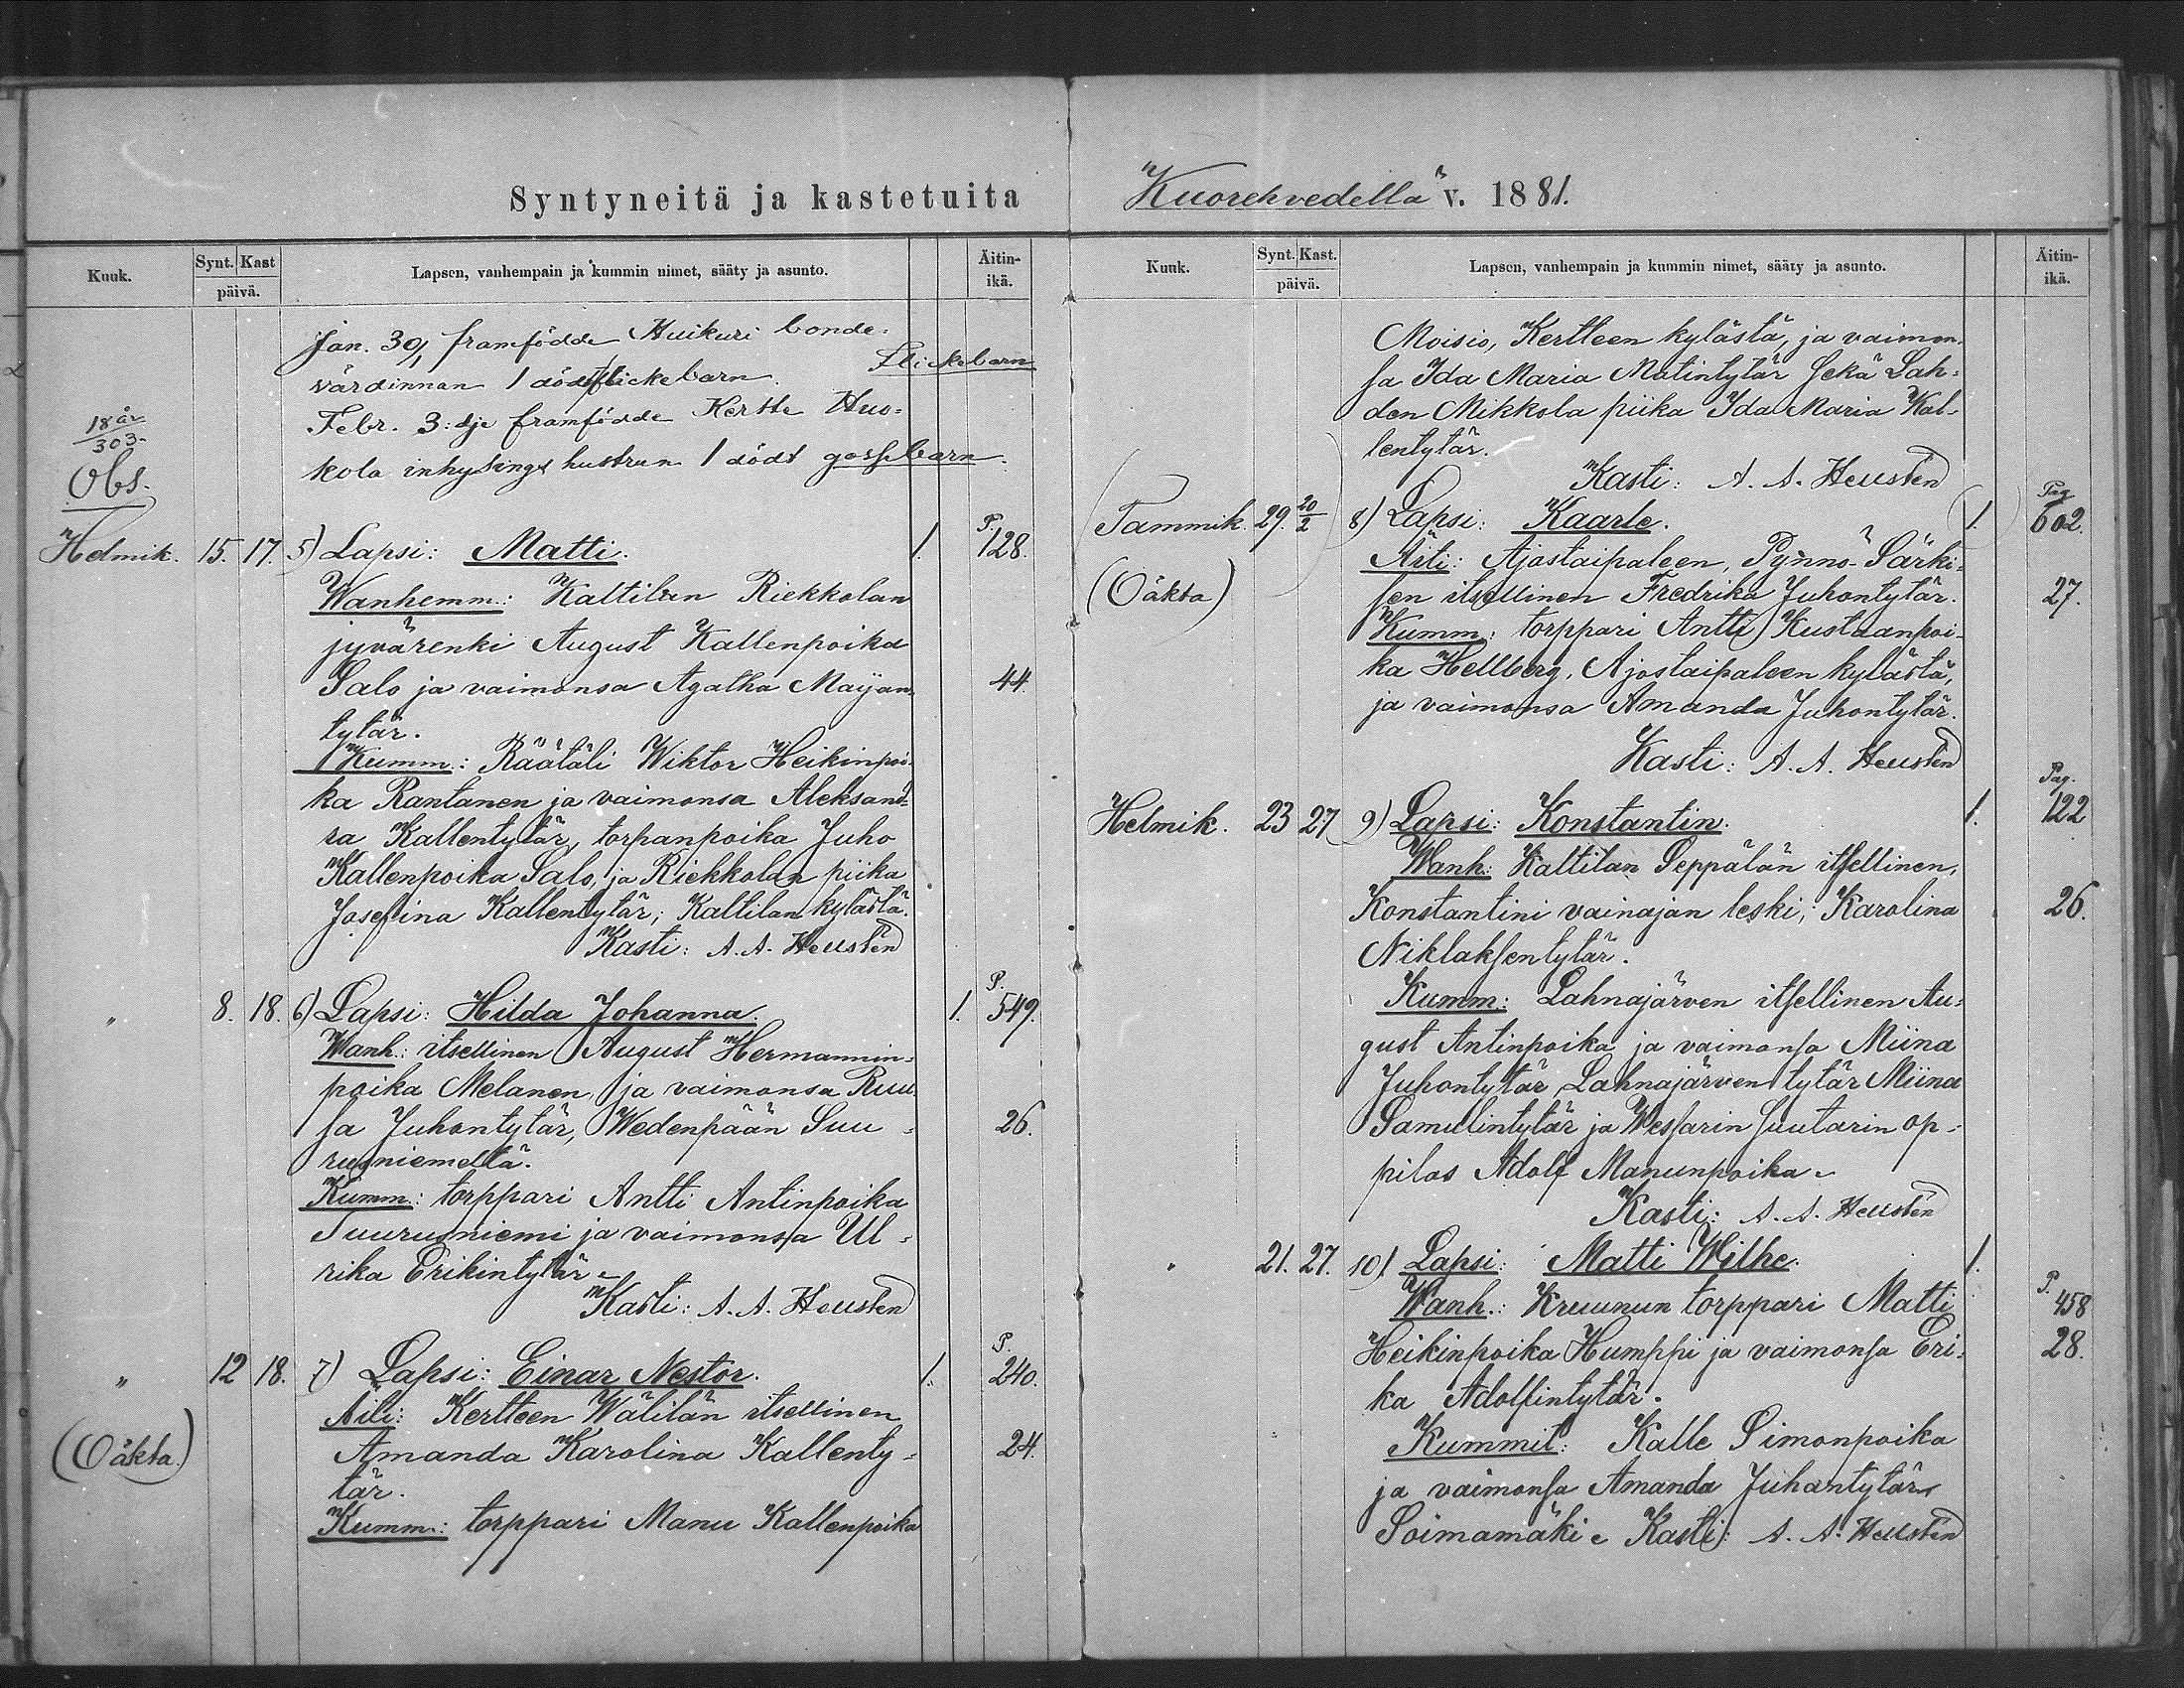 Syntyneitä ja kastetuita
Kuuk.
Synt. Kast
päivä.
Lapsen, vanhempain ja kummin nimet, sääty ja asunto.
Äitin-
ikä.
Jan. 30/1 framfödde Huikuri bonde-
värdinnan 1 dödt flickebarn. Flickebarn
Febr. 3:dje framfödde Kertte Huo-
kola inhysings hustrun 1 dödt gossebarn.
18 år
303.
Obs.
Helmik. 15. 17. 5) Lapsi: Matti. 1. P. 128.
Wanhemm.: Kaltilan Riekkolan
jyvärenki August Kallenpoika
Salo ja vaimonsa Agatha Maijan 44.
tytär.
Kumm.: Räätäli Wiktor Heikinpoi-
ka Rantanen ja vaimonsa Aleksand-
ra Kallentytär, torpanpoika Juho
Kallenpoika Salo, ja Riekkolan piika
Josefina Kallentytär, Kaltilan kylästä.
Kasti: A. A. Heusten
" 8. 18. 6) Lapsi: Hilda Johanna. 1. P. 549.
Wanh.: itsellinen August Hermannin-
poika Melanen ja vaimonsa Ruu-
sa Juhontytär, Wedenpään Suu- 26.
rusniemeltä.
Kumm.: torppari Antti Antinpoika
Suurusniemi ja vaimonsa Ul-
rika Erikintytär.
Kasti: A. A. Heusten
" 12 18. 7) Lapsi: Einar Nestor. 1. P. 240.
Äiti: Kertteen Wälilän itsellinen
(Oäkta.) Amanda Karolina Kallenty- 24.
tär.
Kumm.: torppari Manu Kallenpoika
Kuorehvedellä v. 1881.
Kuuk.
Synt. Kast.
päivä.
Lapsen, vanhempain ja kummin nimet, sääty ja asunto.
Äitin-
ikä.
Moisio, Kertteen kylästä, ja vaimon-
sa Ida Maria Matintytär sekä Lah-
den Mikkola piika Ida Maria Kal-
lentytär.
Kasti: A. A. Heusten
Tammik. 29. 20/2 8) Lapsi: Kaarle. 1. Pag 602.
Äiti: Ajostaipaleen, Pynnö-Särki-
(Oäkta) sen itsellinen Fredrika Juhontytär. 27.
Kumm.: torppari Antti Kustaanpoi-
ka Hellberg, Ajostaipaleen kylästä,
ja vaimonsa Amanda Juhontytär.
Kasti: A. A. Heusten
Helmik. 23 27 9) Lapsi: Konstantin. 1. Pag. 122
Wanh: Kaltilan Seppälän itsellinen,
Konstantini vainajan leski, Karolina 26.
Niklaksentytär.
Kumm: Lahnajärven itsellinen Au-
gust Antinpoika ja vaimonsa Miina
Juhontytär, Lahnajärven tytär Miina
Samulintytär ja Wessarin suutarin op-
pilas Adolf Manunpoika.
Kasti: A. A. Heusten
" 21. 27. 10) Lapsi: Matti Wilhe. 1.
Wanh.: Kruunun torppari Matti P. 458
Heikinpoika Humppi ja vaimonsa Eri- 28.
ka Adolfintytär.
Kummit: Kalle Simonpoika
ja vaimonsa Amanda Juhontytär
Soimamäki. Kasti: A. A. Heusten